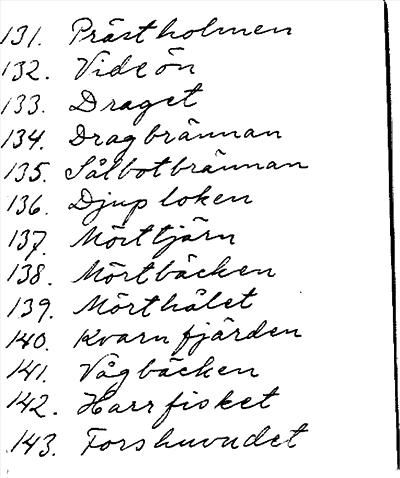 131. Prästholmen
132. Videön
133. Draget
134. Dragbrännan
135. Sålbotbrännan
136. Djuploken
137. Mörttjärn
138. Mörtbäcken
139. Mörthålet
140. Kvarnfjärden
141. Vågbäcken
142. Harrfisket
143. Forshuvudet